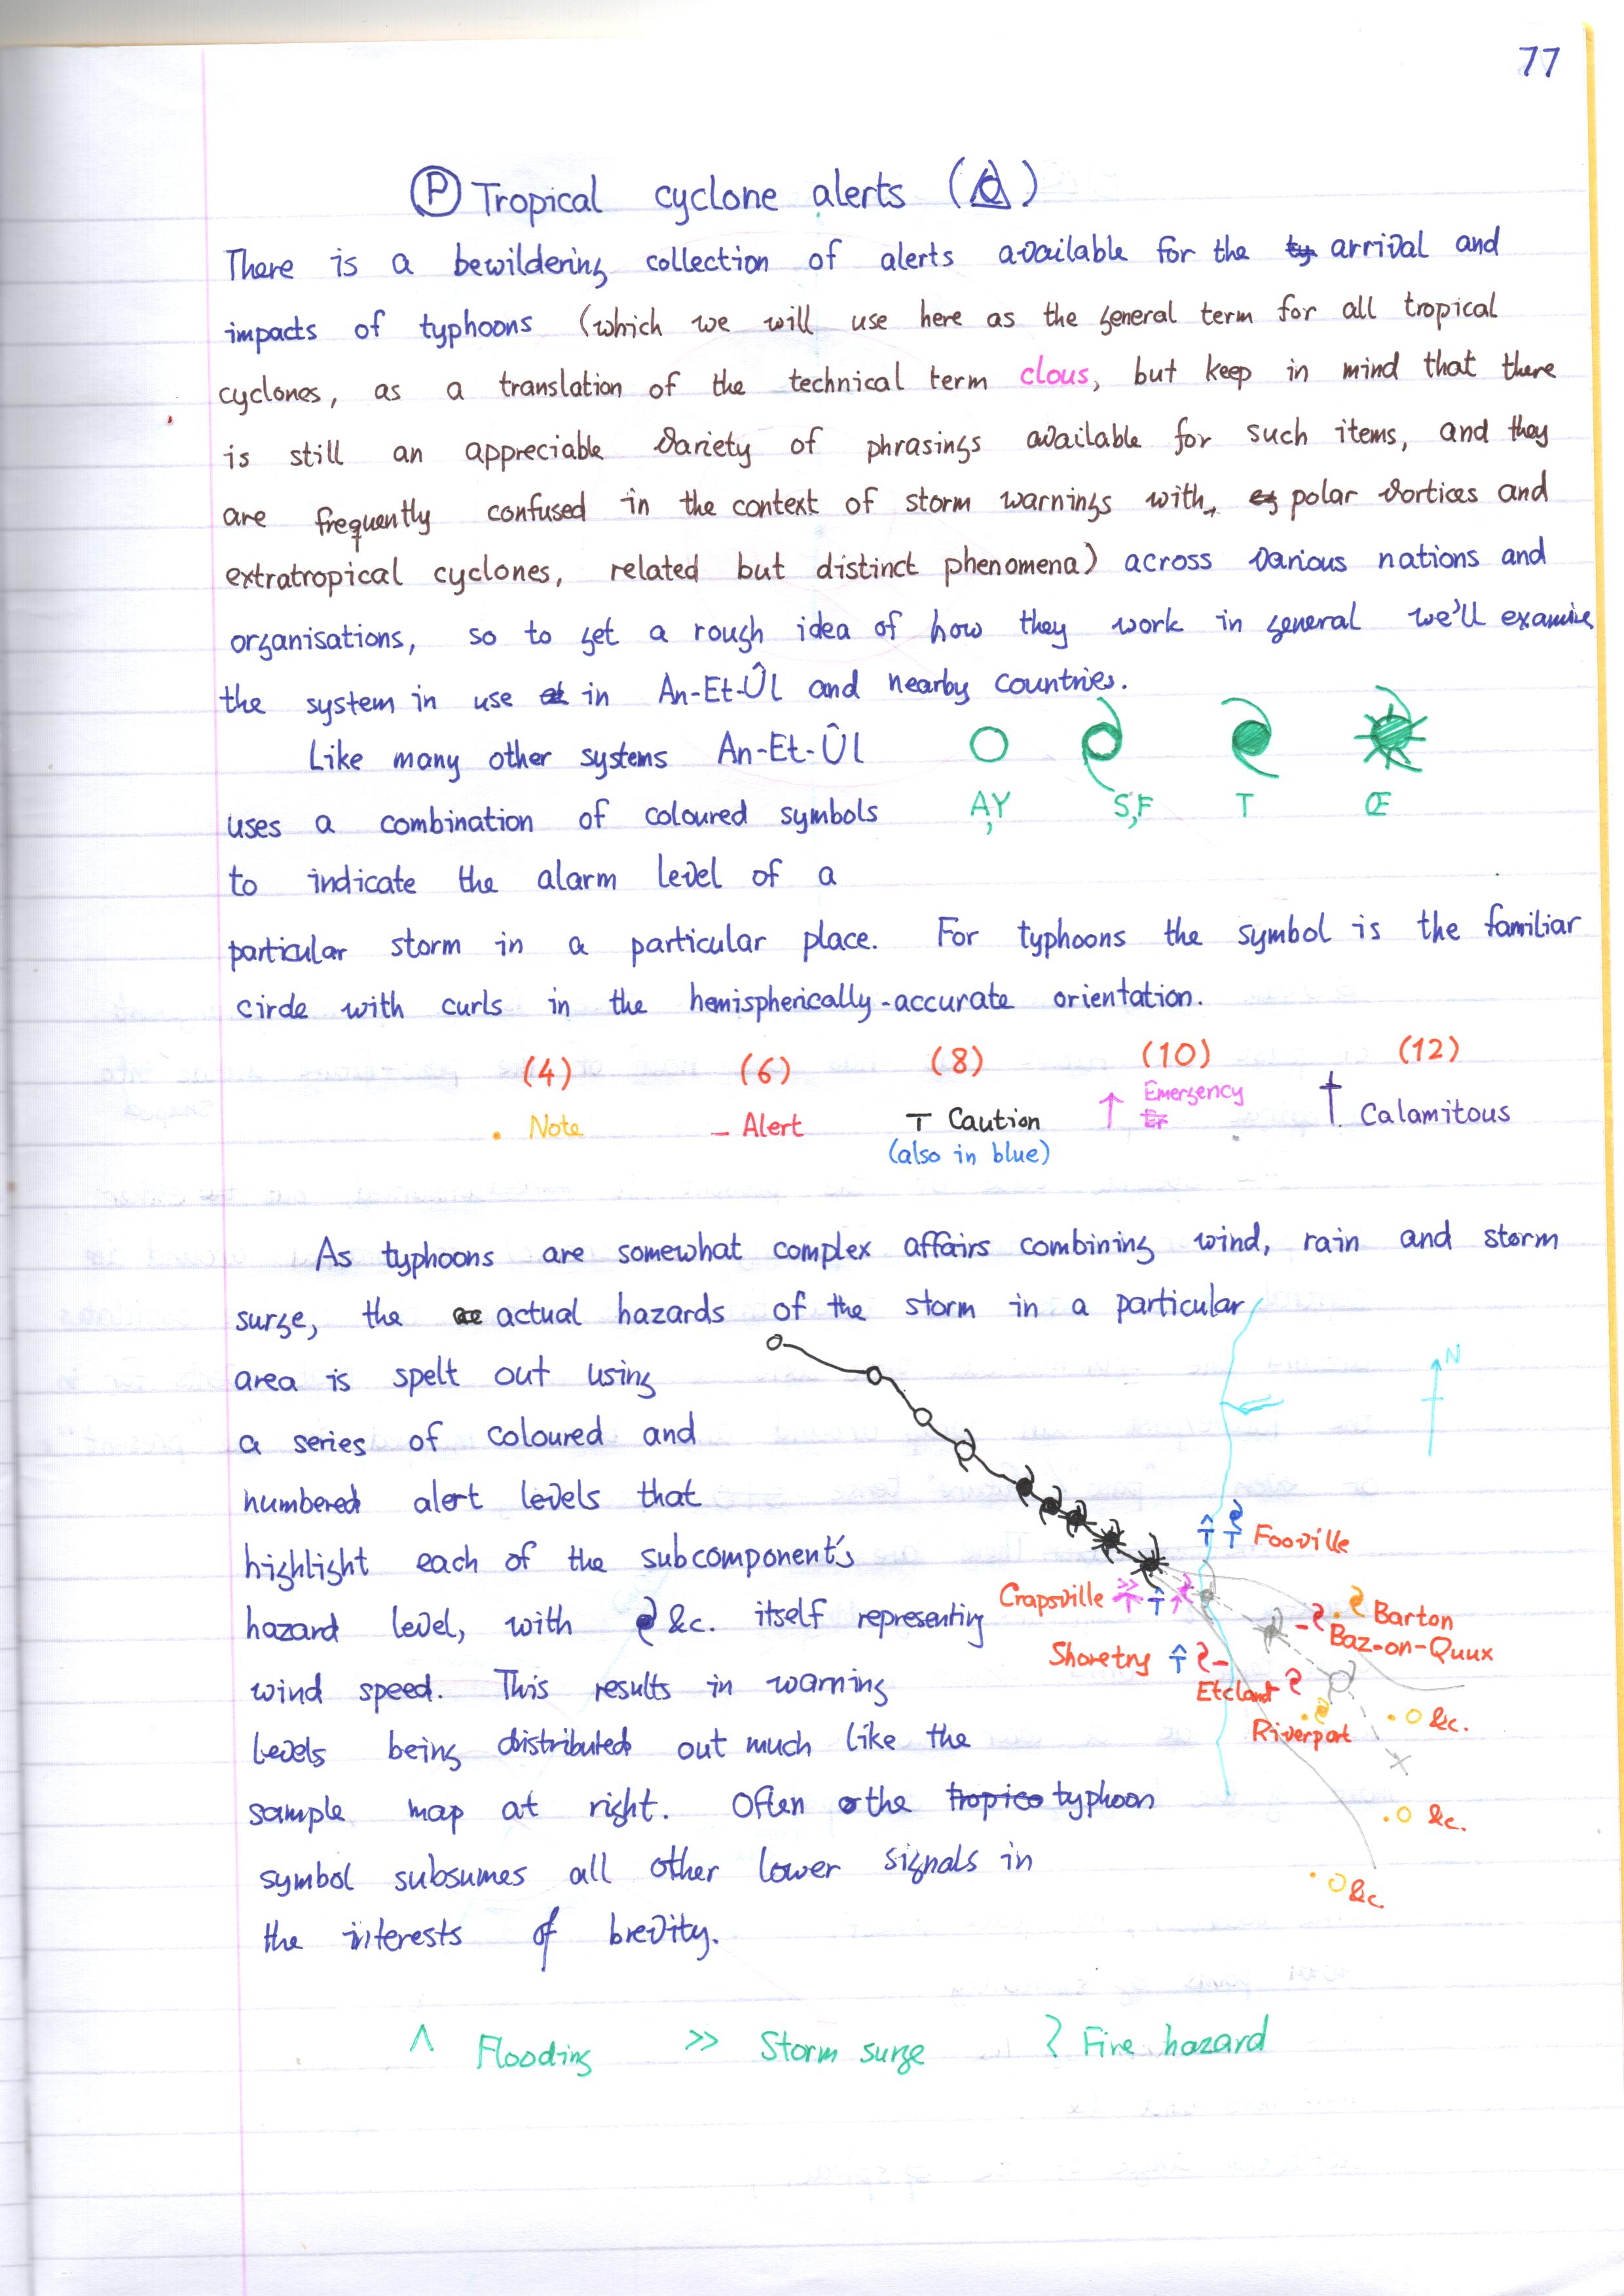 77
Ⓟ Tropical cyclone alerts ( )
There is a bewildering collection of alerts available for the ty arrival and
impacts of typhoons (which we will use here as the general term for all tropical
cyclones, as a translation of the technical term clous, but keep in mind that there
is still an appreciable variety of phrasings available for such items, and they
are frequently confused in the context of storm warnings with, eg polar vortices and
extratropical cyclones, related but distinct phenomena) across various nations and
organisations, so to get a rough idea of how they work in general we'll examine
the system in use at in An-Et-Ûl and nearby countries.
Like many other systems An-Et-Ûl
uses a combination of coloured symbols
to indicate the alarm level of a
A,Y S,F T Œ
particular storm in a particular place. For typhoons the symbol is the familiar
circle with curls in the hemispherically-accurate orientation.
(4) (6) (8) (10) (12)
. Note – Alert T Caution ↑ Emergency † Calamitous
(also in blue)
As typhoons are somewhat complex affairs combining wind, rain and storm
surge, the actual hazards of the storm in a particular
area is spelt out using
a series of coloured and
numbered alert levels that
highlight each of the subcomponent's
hazard level, with &c. itself representing
wind speed. This results in warning
levels being distributed out much like the
sample map at right. Often the tropico typhoon
symbol subsumes all other lower signals in
the interests of brevity.
N
Fooville
Crapsville
Barton
Baz-on-Quux
Shoretry
Etcland
Riverport
&c.
&c.
&c.
^ Flooding >> Storm surge Fire hazard